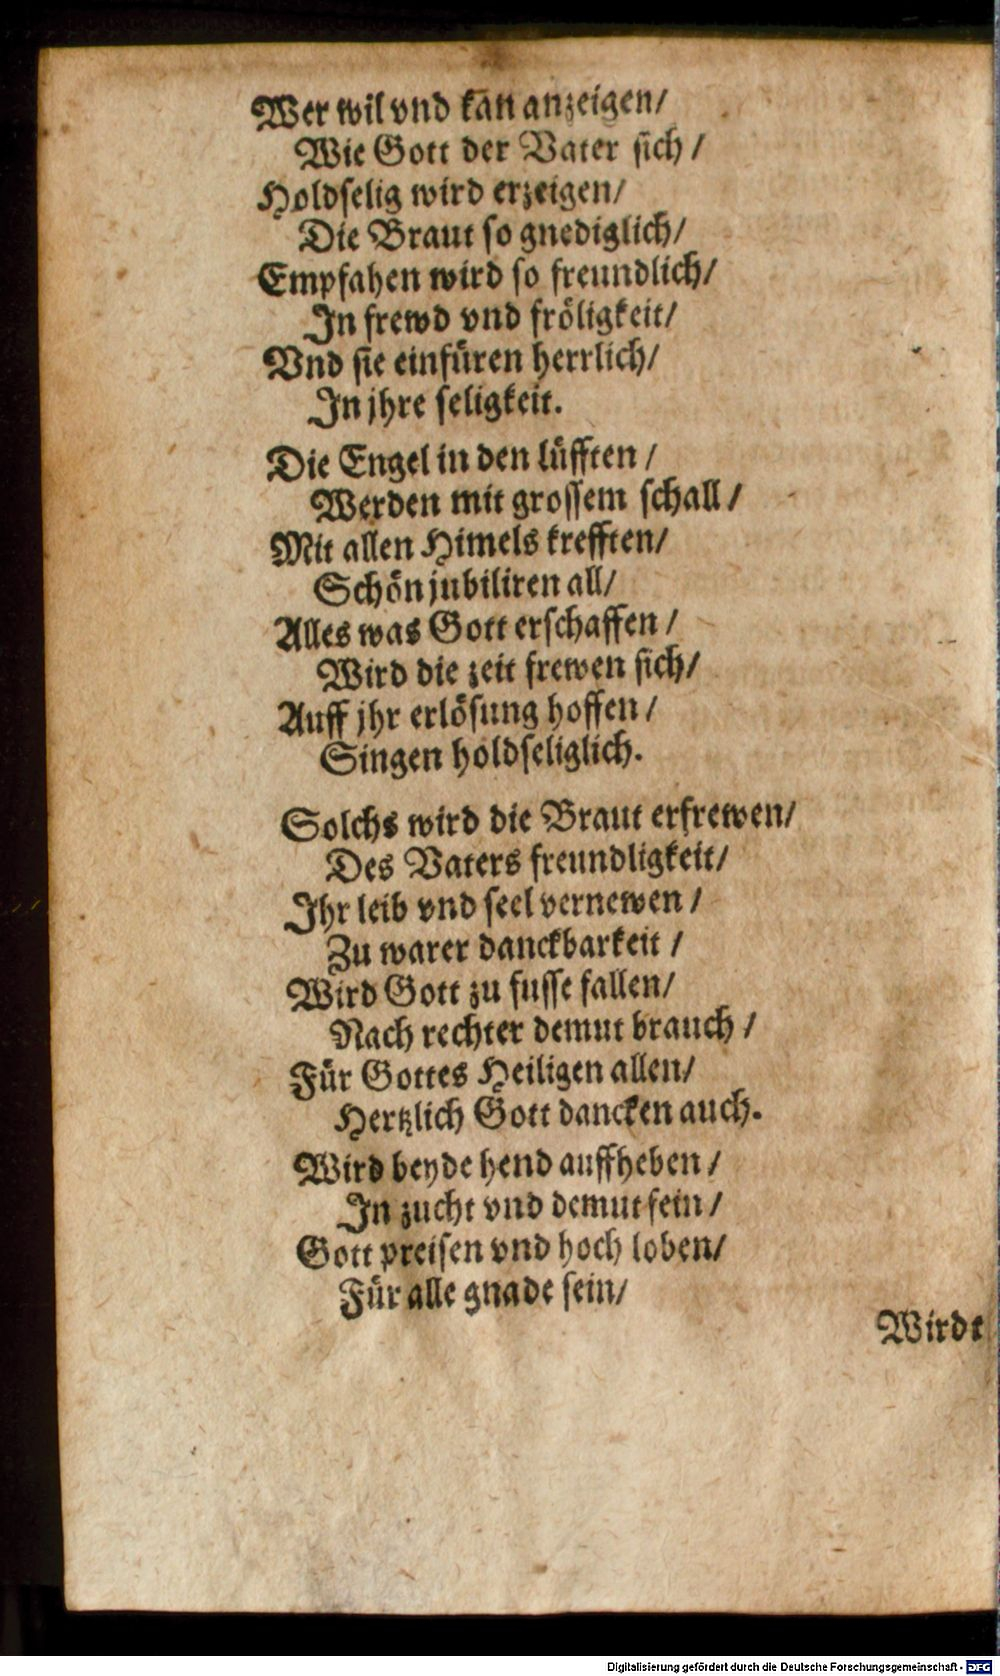 Wer wil vnd kan anzeigen/
Wie Gott der Vater sich /
Holdselig wird erzeigen/
Die Braut so gnediglich/
Empfahen wird so freundlich/
In frewd vnd fröligkeit/
Vnd sie einfüren herrlich/
In jhre seligkeit.
Die Engel in den lüfften /
Werden mit grossem schall /
Mit allen Himels krefften/
Schön jubiliren all/
Alles was Gott erschaffen /
Wird die zeit frewen sich/
Auff jhr erlösung hoffen /
Singen holdseliglich.
Solchs wird die Braut erfrewen/
Des Vaters freundligkeit/
Ihr leib vnd seel vernewen /
Zu warer danckbarkeit /
Wird Gott zu fusse fallen/
Nach rechter demut brauch /
Für Gottes Heiligen allen/
Hertzlich Gott dancken auch.
Wird beyde hend auffheben /
In zucht vnd demut fein /
Gott preisen vnd hoch loben/
Für alle gnade sein/
Wirdt
Digitalisierung gefördert durch die Deutsche Forschungsgemeinschaft - DFG